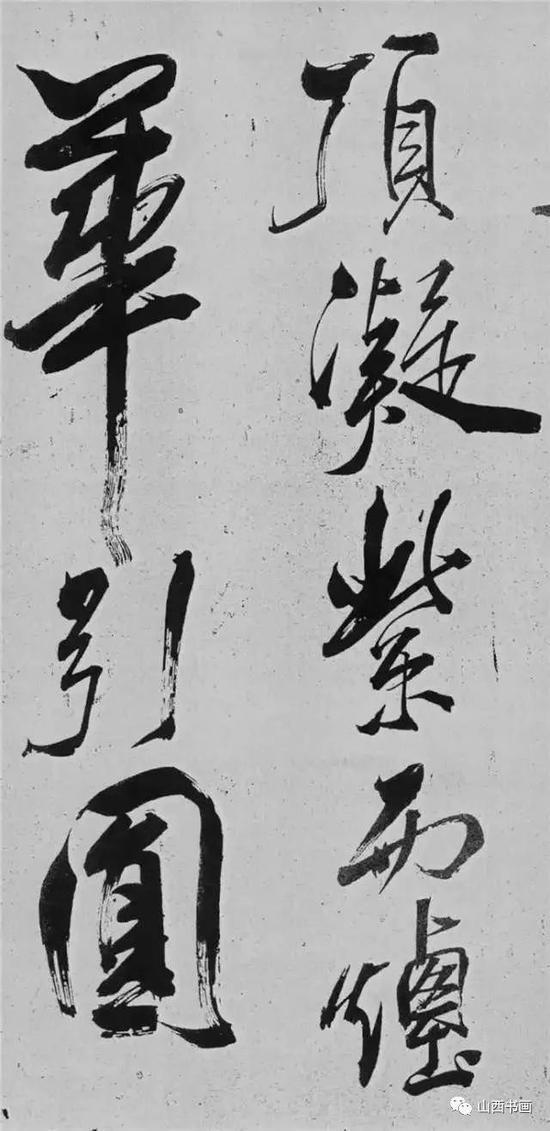 頂凝紫而煙
華引圓
山西书画